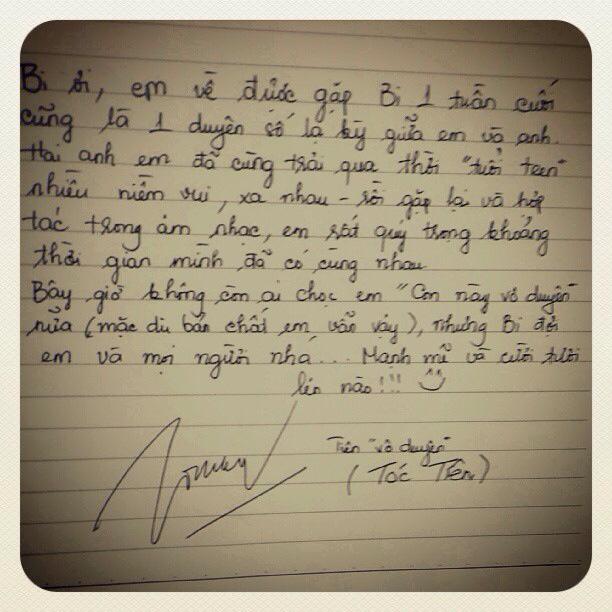 Bi ơi, em về được gặp Bi 1 tuần cuối
cũng là 1 duyên số lạ kỳ giữa em và anh.
Hai anh em đã cùng trải qua thời "tuổi teen"
nhiều niềm vui, xa nhau - rồi gặp lại và hợp
tác trong âm nhạc, em rất quý trọng khoảng
thời gian mình đã có cùng nhau
Bây giờ không còn ai chọc em "Con này vô duyên"
nữa (mặc dù bản chất em vẫn vậy), nhưng Bi đợi
em và mọi người nhá... Mạnh mẽ và cười tươi
lên nào!!!
Tiên "vô duyên"
(Tóc Tiên)